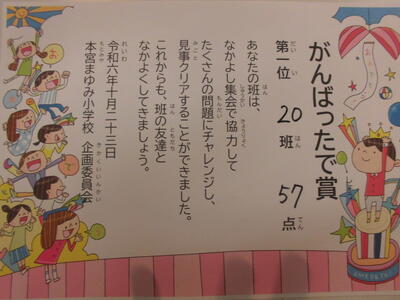 がんばったで賞
第一位 20班 57点
あなたの班は、
なかよし集会で協力して
たくさんの問題にチャレンジし、
見事クリアすることができました。
これからも、班の友達と
なかよくしてきましょう。
令和六年十月二十三日
本宮まゆみ小学校 企画委員会